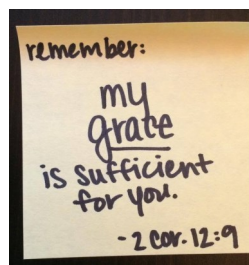 remember:
my
grace
is sufficient
for you.
- 2 cor. 12:9